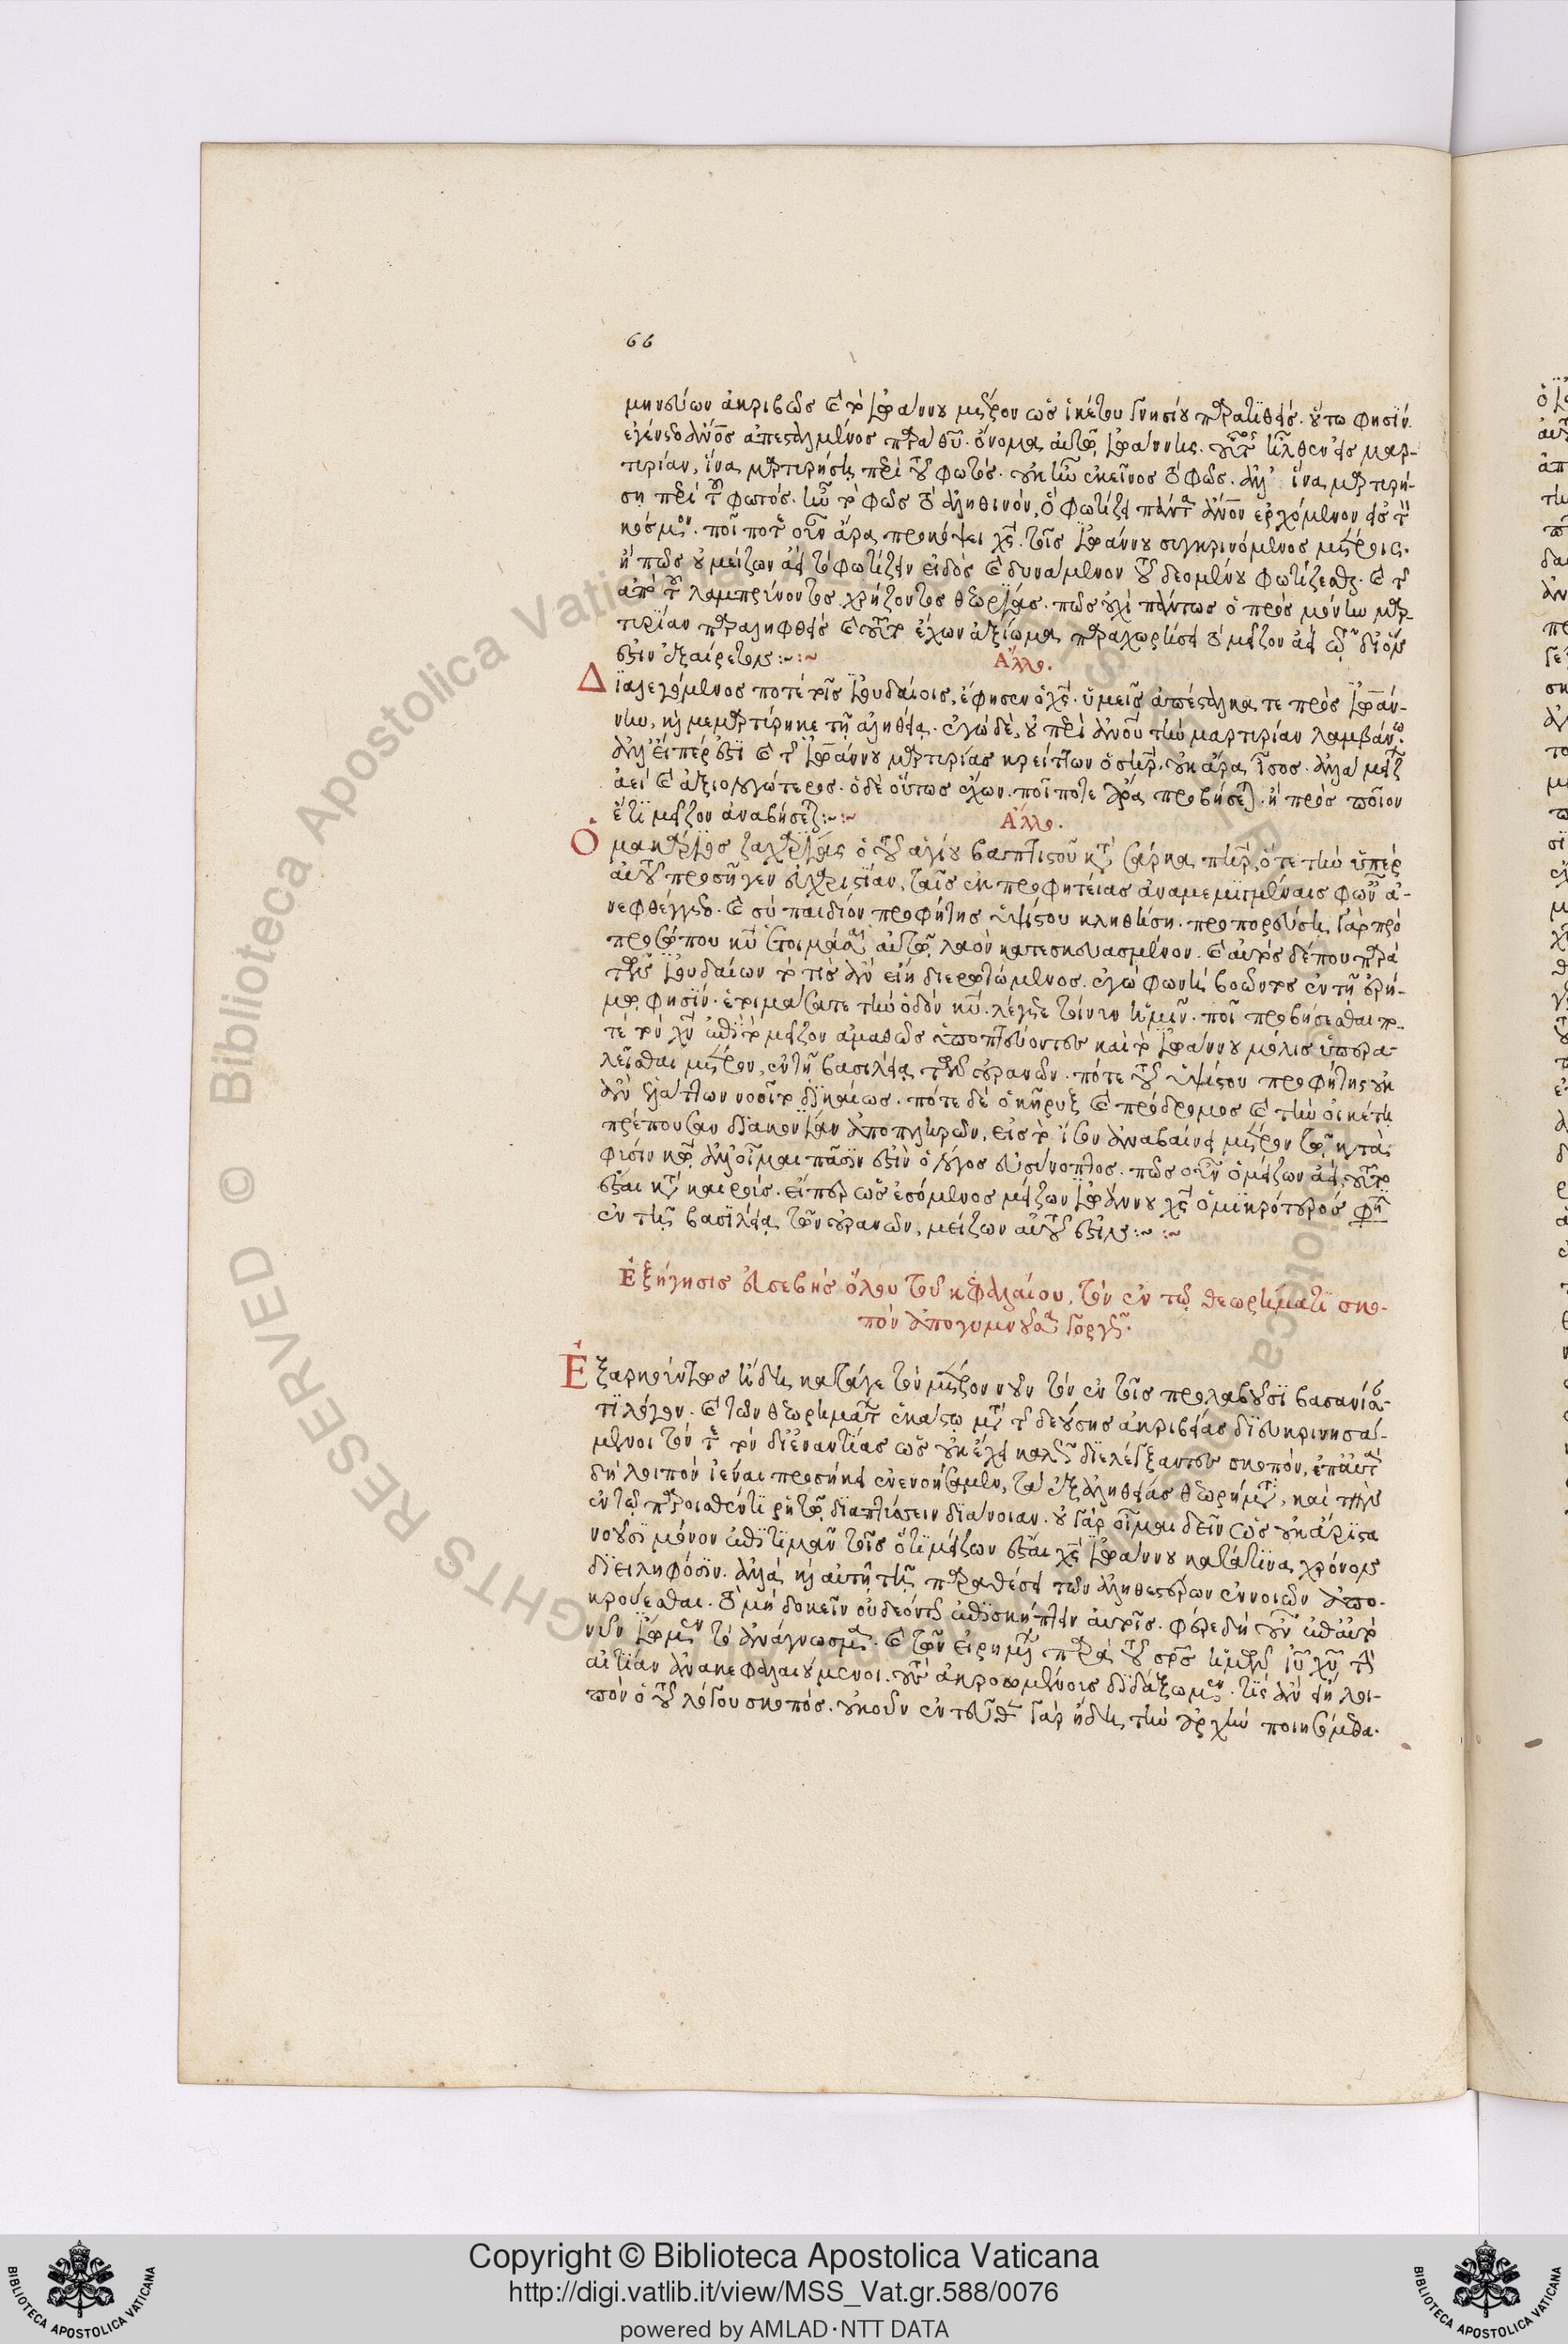 66
μηνύων ἀκριβῶς καὶ τὸ Ἰωάννου μέτρον ὡς οἰκέτου γνησίου παρατιθείς. οὕτω φησίν.
ἐγένετο ἄνος ἀπεσταλμένος παρὰ θυ. ὄνομα αὐτῷ Ἰωάννης. οὗτος ἦλθεν εἰς μαρ-
τυρίαν, ἵνα μαρτυρήσῃ περὶ τοῦ φωτός. οὐκ ἦν ἐκεῖνος τὸ φῶς. ἀλλ' ἵνα μαρτυρή-
ση περὶ τοῦ φωτός. ἦν τὸ φῶς τὸ ἀληθινόν, ὃ φωτίζει πάντα ἄνον ἐρχόμενον εἰς τὸν
κόσμον. ποῖ ποτὲ οὖν ἄρα προκόψει χς. τοῖς Ἰωάννου συγκρινόμενος μέτροις.
ἢ πῶς οὐ μείζων ἀεὶ τὸ φωτίζειν εἰδὸς καὶ δυνάμενον τοῦ δεομένου φωτίζεσθαι. καὶ τῆς
ἀπὸ τοῦ λαμπρύνοντος χρήζοντος θεωρίας. πῶς οὐχὶ πάντως ὁ πρὸς μόνην μαρ-
τυρίαν παραληφθεὶς καὶ τοῦτο ἔχων ἀξίωμα παραχωρήσει τὸ μεῖζον ἀεὶ
ἐστιν ἐξαίρετον :~:~ Ἄλλο.
Διαλεγόμενος ποτὲ τοῖς Ἰουδαίοις, ἔφησεν ὁ χς. ὑμεῖς ἀπεστάλκατε πρὸς Ἰωάν-
νην, καὶ μεμαρτύρηκε τῇ ἀληθείᾳ. ἐγὼ δὲ, οὐ παρὰ ἀνου τὴν μαρτυρίαν λαμβάνω.
ἀλλ' εἴπερ ἐστὶ καὶ τῆς Ἰωάννου μαρτυρίας κρείττων ὁ σηρ. οὐκ ἄρα ἴσος. ἀλλὰ μείζων
ἀεὶ καὶ ἀξιολογώτερος. ὁ δὲ οὕτως ἔχων. ποῖ ποτε ἄρα προβήσεται. ἢ πρὸς ποῖον
ἔτι μεῖζον ἀναβήσεται :~:~ Ἄλλο.
Ὁ μακάριος Ζαχαρίας ὁ τοῦ ἁγίου βαπτιστοῦ κατὰ σάρκα πηρ, ὅτε τὴν ὑπὲρ
αὐτοῦ προσῆγεν εὐχαριστίαν, ταῖς ἐκ προφητείας ἀναμεμιγμέναις φωναῖς ἀ-
νεφθέγγετο. καὶ σὺ παιδίον προφήτης ὑψίστου κληθήση. προπορεύσῃ γὰρ πρὸ
προσώπου κυ ἑτοιμάσαι αὐτῷ λαὸν κατεσκευασμένον. καὶ αὐτὸς δέ που παρὰ
τῶν Ἰουδαίων τὸ τίς ἂν εἴη διερωτώμενος. ἐγὼ φωνὴ βοῶντος ἐν τῇ ἐρή-
μῳ φησίν. ἑτοιμάσατε τὴν ὁδὸν κυ. λέγετε τοίνυν ἡμῖν. ποῖ προβήσεσθαι πο-
τὲ τὸν χν ἐπὶ τὸ μεῖζον ἀμαθῶς ὑποπτεύοντες καὶ τὸ Ἰωάννου μόλις ὑπερα-
λεῖσθαι μέτρον, ἐν τῇ βασιλείᾳ τῶν οὐρανῶν. πότε τοῦ ὑψίστου προφήτης οὐκ
ἂν ἐλάττων νοοῖτο δικαίως. πότε δὲ ὁ κῆρυξ καὶ πρόδρομος καὶ τὴν οἰκέτῃ
πρέπουσαν διακονίαν ἀποπληρῶν, εἰς τὸ ἴσον ἀναβαίνει μέτρον τῷ κατὰ
φύσιν κῷ ἀλλ' οἶμαι πᾶσιν ἐστὶν ὁ λόγος εὐσύνοπτος. πῶς οὖν ὁ μείζων ἀεὶ, τοῦτο
ἔσται κατὰ καιρούς. εἴπερ ὡς ἐσόμενος μείζων Ἰωάννου χς ὁ μικρότερός φησιν
ἐν τῇ βασιλείᾳ τῶν οὐρανῶν, μείζων αὐτοῦ ἐστιν :~:~
Ἐξήγησις εὐσεβὴς ὅλου τοῦ κεφαλαίου, τὸν ἐν τῷ θεωρήματι σκο-
πὸν ἀπογυμνοῦσα
Ἐξαρκούντως ἤδη κατάγε τὸν μείζονα νοῦν τὸν ἐν τοῖς προλαβοῦσι βασανίσαν-
τι λόγον. καὶ τῶν θεωρημάτων ἑκάστῳ μετὰ τῆς δεούσης ἀκριβείας διευκρινησά-
μενοι τὸν τῶν δι' ἐναντίας ὡς οὐκ ἔχει καλῶς διελέγξαντες σκοπόν, ἐπ' αὐτὰ
δὴ λοιπὸν ἰέναι προσήκει ἐνενοήσαμεν, τὰ ἐξ ἀληθείας θεωρήματα, καὶ τὴν
ἐν τῷ προτεθέντι ῥητῷ διαπτύσσειν διάνοιαν. οὐ γὰρ οἶμαι δεῖν τοῖς οὐκ ἄριστα
νοοῦσι μόνον ἐπιτιμᾶν τοῖς ὅτι μείζων ἔσται χς Ἰωάννου κατά τινας χρόνους
διειληφόσιν. ἀλλὰ καὶ αὐτῇ τῇ παραθέσει τῶν ἀληθεστέρων ἐννοιῶν ἀπο-
κρούεσθαι. τὸ μὴ δοκεῖν οὐ δεόντως ἐπισκήπτειν αὐτοῖς. φέρε δὴ οὖν ἐπ' αὐτὸ
νῦν ἴωμεν τὸ ἀνάγνωσμα. καὶ τῶν εἰρημένων παρὰ τοῦ σρς ἡμῶν ιυ χυ τὴν
αἰτίαν ἀνακεφαλαιούμενοι. τοὺς ἀκροωμένους διδάξωμεν. τίς ἂν εἴη λοι-
πὸν ὁ τοῦ λόγου σκοπός. οὐκοῦν ἐντεῦθεν γὰρ ἤδη τὴν ἀρχὴν ποιησόμεθα.
Copyright © Biblioteca Apostolica Vaticana
http://digi.vatlib.it/view/MSS_Vat.gr.588/0076
powered by AMLAD·NTT DATA